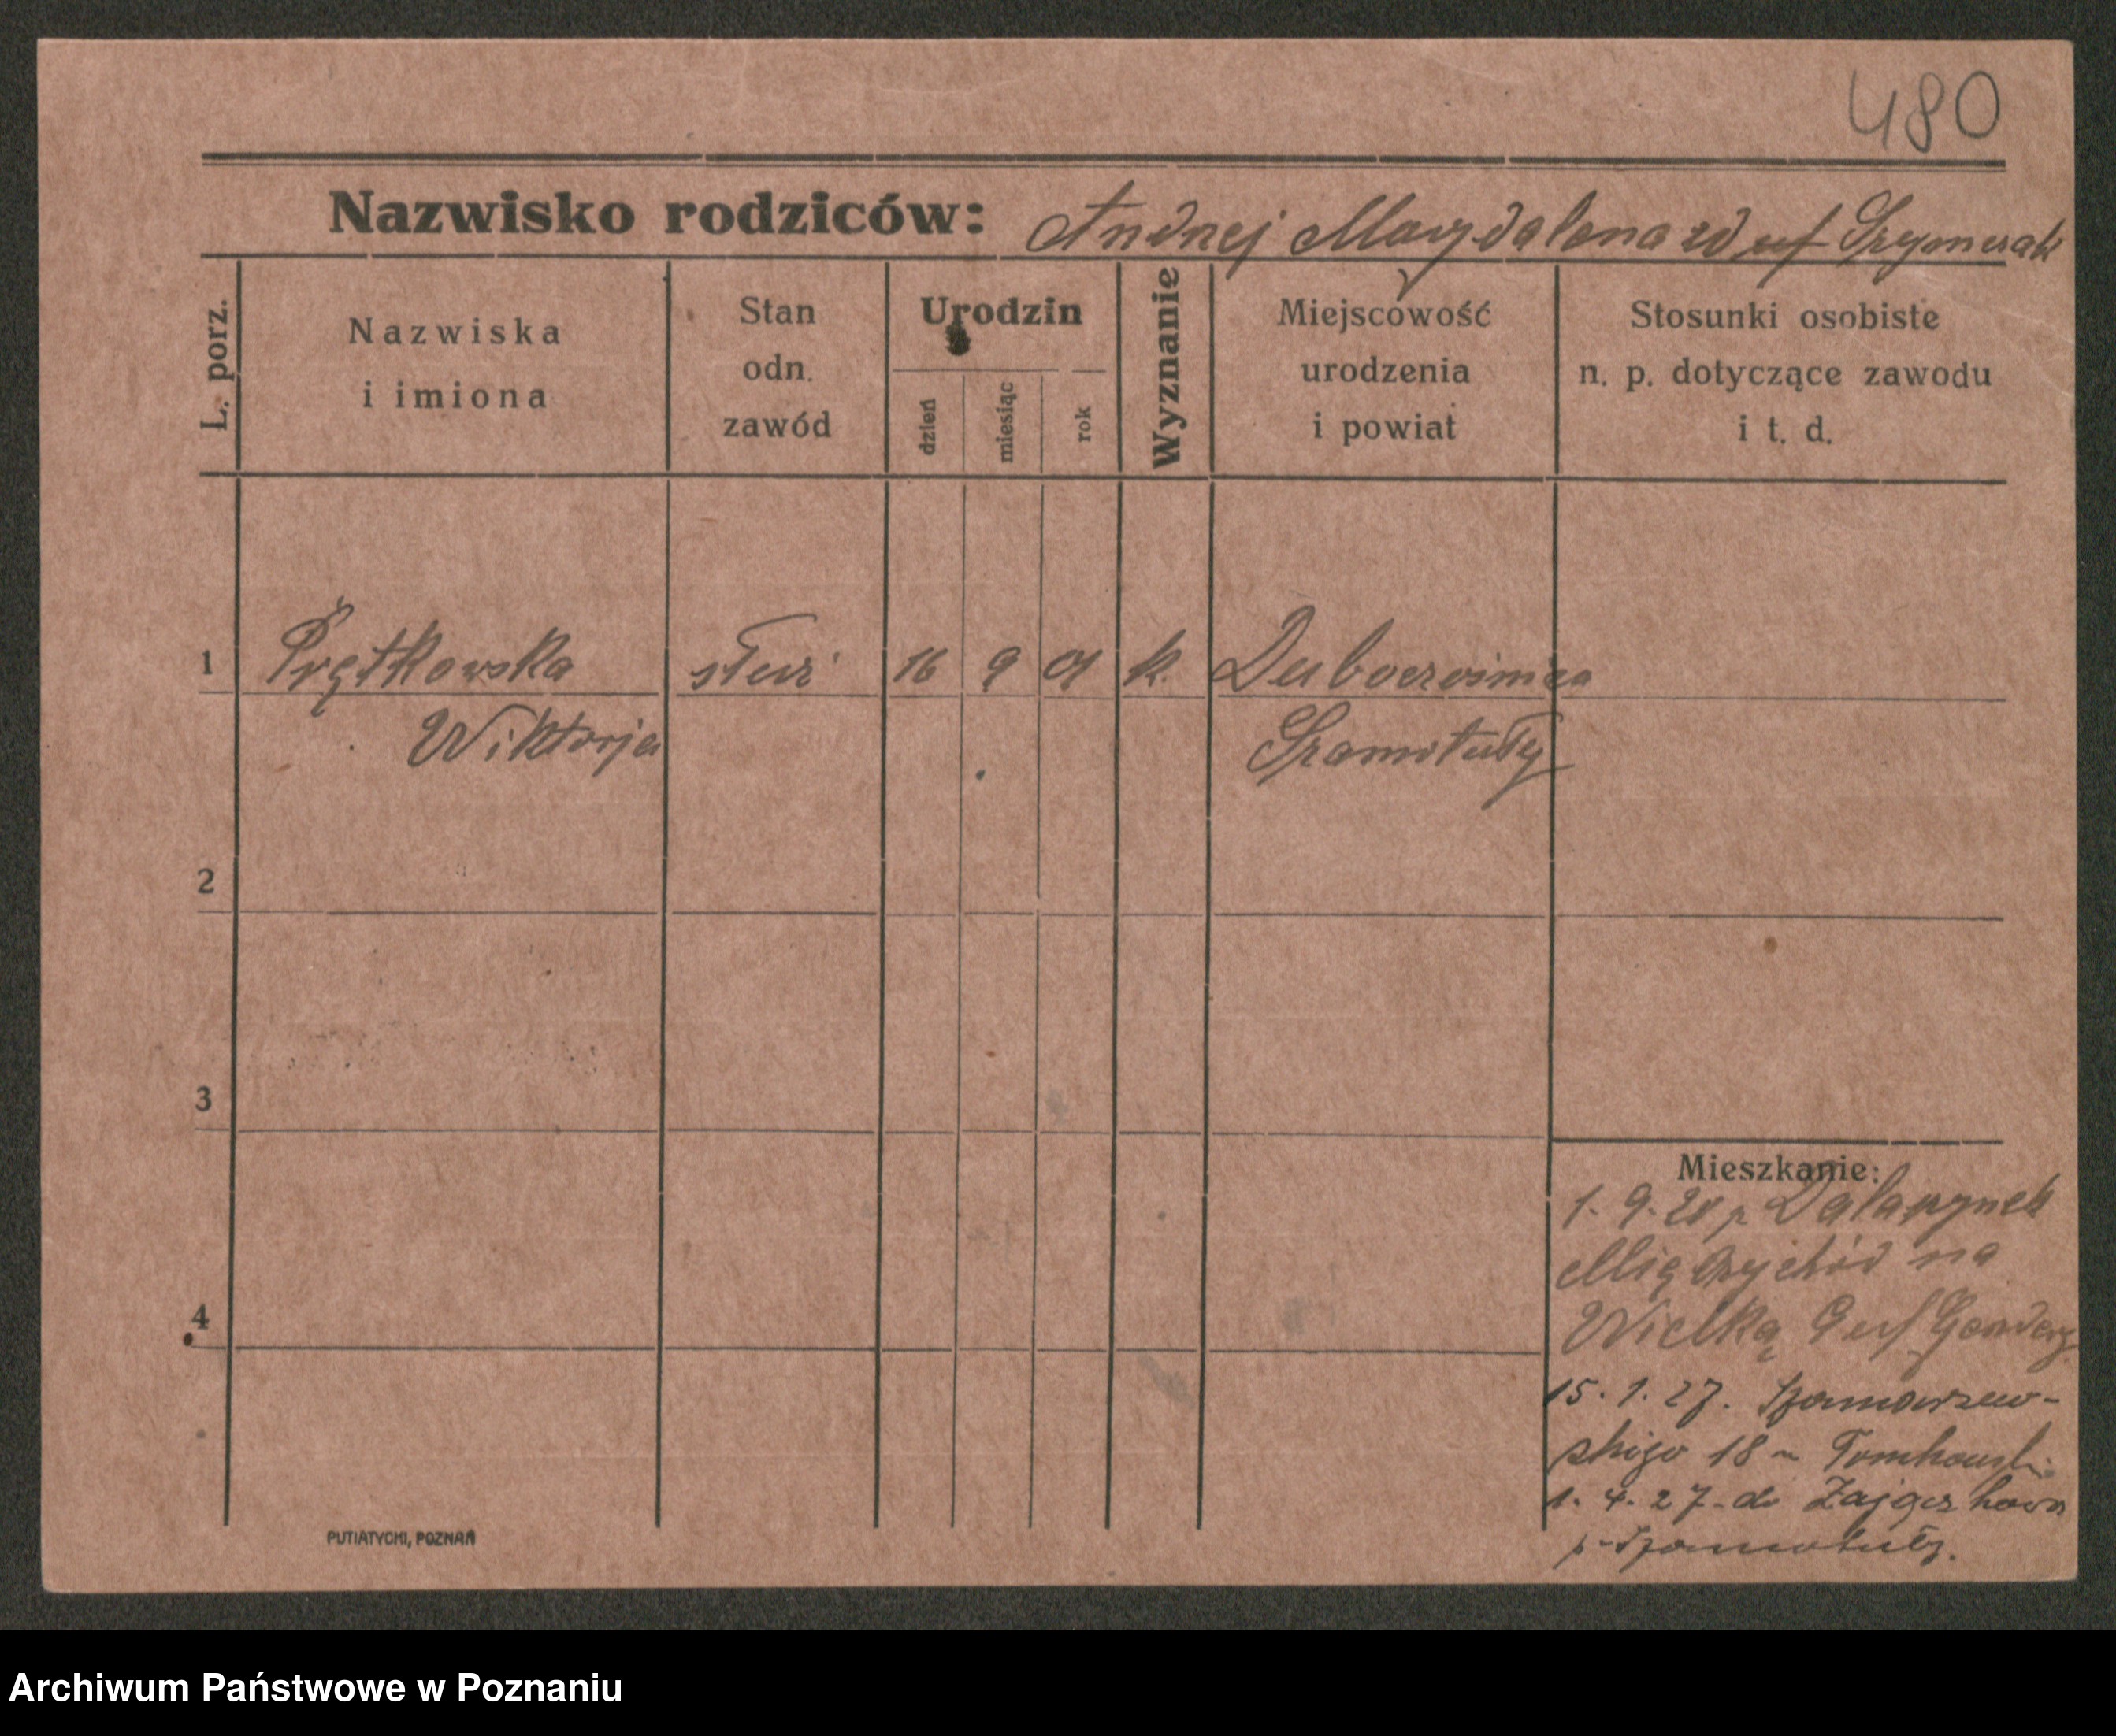 480
Nazwisko rodziców: Andrzej Magdalena zd Szymczak
L. porz.
Nazwiska
i imiona
Stan
odn.
zawód
Urodzin
dzień
miesiąc
rok
Wyznanie
Miejscowość
urodzenia
i powiat
Stosunki osobiste
n. p. dotyczące zawodu
i t. d.
1 Prętkowska służ 16 9 01 k.
Wiktorja Szamotuły
2
3
4
Mieszkanie:
1. 9. p
Międzychód na
Wielką
15. 1. 27. Szamarzew-
skiego 18
1. 4. 27. do Zajączkowa
p. Szamotuły.
PUTIATYCKI, POZNAŃ
Archiwum Państwowe w Poznaniu